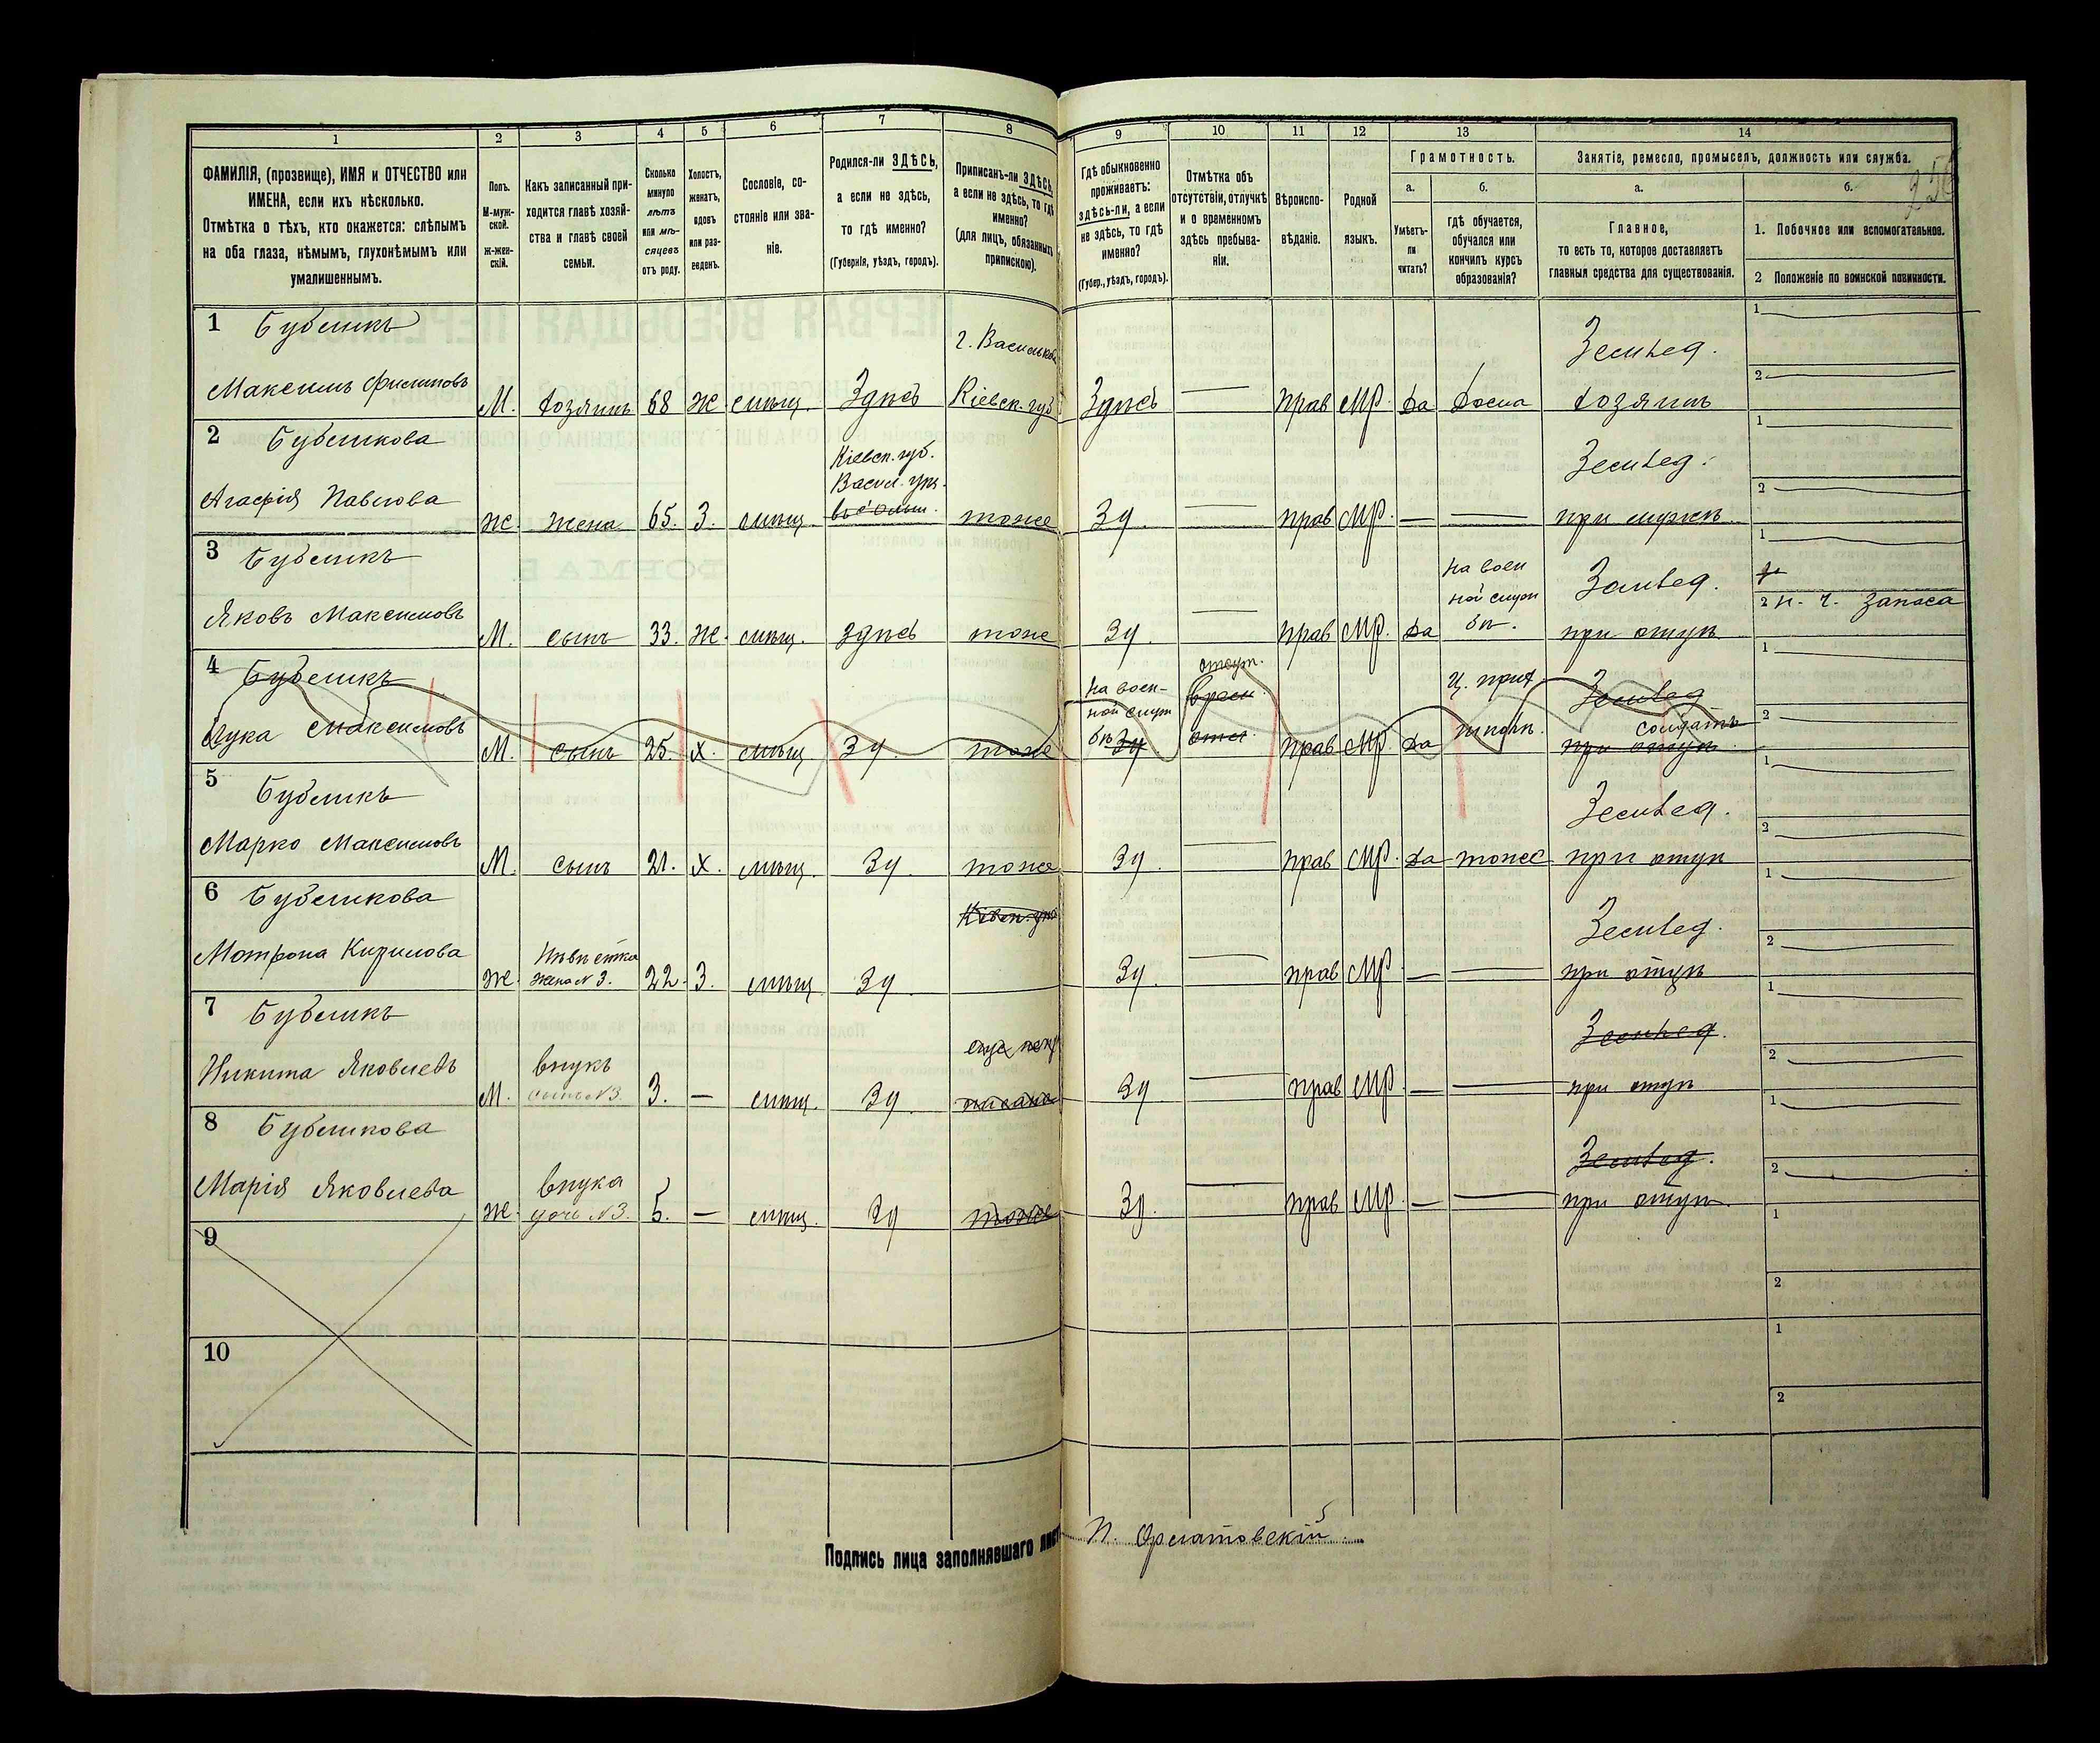 1
2
3
4
5
6
7
8
ФАМИЛІЯ, (прозвище), ИМЯ и ОТЧЕСТВО или
ИМЕНА, если ихъ нѣсколько.
Отмѣтка о тѣхъ, кто окажется: слѣпымъ
на оба глаза, нѣмымъ, глухонѣмымъ или
умалишеннымъ.
Полъ.
М-муж-
ской.
Ж-жен-
скій.
Какъ записанный при-
ходится главѣ хозяй-
ства и главѣ своей
семьи.
Сколько
минуло
лѣтъ
или мѣ-
сяцевъ
отъ роду.
Холостъ,
женатъ,
вдовъ
или раз-
веденъ.
Сословіе, со-
стояніе или зва-
ніе.
Родился-ли ЗДѢСЬ,
а если не здѣсь,
то гдѣ именно?
(Губернія, уѣздъ, городъ).
Приписанъ-ли ЗДѢСЬ,
а если не здѣсь, то гдѣ
именно?
(для лицъ, обязанныхъ
припискою).
1 Бубликъ
Максимъ Филиповъ
М.
хозяинъ
68
ж.
мѣщ.
Здѣсь
г. Васильковъ
Кіевск. губ
2 Бубликова
Агафія Павлова
ж.
жена
65.
З.
мѣщ.
Кіевск. губ.
Васил. уѣз.
тоже
3 Бубликъ
Яковъ Максимовъ
М.
сынъ
33.
ж.
мѣщ.
здѣсь
тоже
4 Бубликъ
Лука Максимовъ
М.
сынъ
25.
х.
мѣщ
Зд.
тоже
5 Бубликъ
Марко Максимовъ
М.
сынъ
21.
х.
мѣщ.
Зд.
тоже
6 Бубликова
Мотрона Кирилова
ж.
Невѣстка
жена N 3.
22.
З.
мѣщ
Зд.
7 Бубликъ
Никита Яковлевъ
М.
внукъ
сынъ N3.
3.
—
мѣщ.
Зд.
8 Бубликова
Марія Яковлева
ж.
внука
дочь N3.
5.
—
мѣщ.
Зд
тоже
9
10
9
10
11
12
13
14
Гдѣ обыкновенно
проживаетъ:
здѣсь-ли, а если
не здѣсь, то гдѣ
именно?
(Губер., уѣздъ, городъ).
Отмѣтка объ
отсутствіи, отлучкѣ
и о временномъ
здѣсь пребыва-
ніи.
Вѣроиспо-
вѣданіе.
Родной
языкъ.
Грамотность.
а.
Умѣетъ-
ли
читать?
б.
гдѣ обучается,
обучался или
кончилъ курсъ
образованія?
Занятіе, ремесло, промыселъ, должность или служба.
а.
Главное,
то есть то, которое доставляетъ
главныя средства для существованія.
б.
1. Побочное или вспомогательное.
2 Положеніе по воинской повинности.
Здѣсь
прав
мр.
да
дома
Землед.
хозяинъ
1
2
Зд.
прав
мр.
—
Землед.
при мужѣ
1
2
Зд.
прав
мр.
да
на воен
ной служ
бѣ.
Землед.
при отцѣ
1
2 н. ч. запаса
на воен-
ной служ
бѣ Зд
прав
мр.
да
ц. прих.
школѣ.
Землед
солдатъ
при отцѣ
1
2
Зд.
прав
мр.
да
тоже
Землед.
при отцѣ
1
2
Зд.
прав
мр.
—
Землед.
при отцѣ
1
2
Зд
прав
мр.
—
Землед.
при отцѣ
1
2
Зд.
прав
мр.
—
Землед.
при отцѣ
1
2
1
2
1
2
Подпись лица заполнявшаго лист